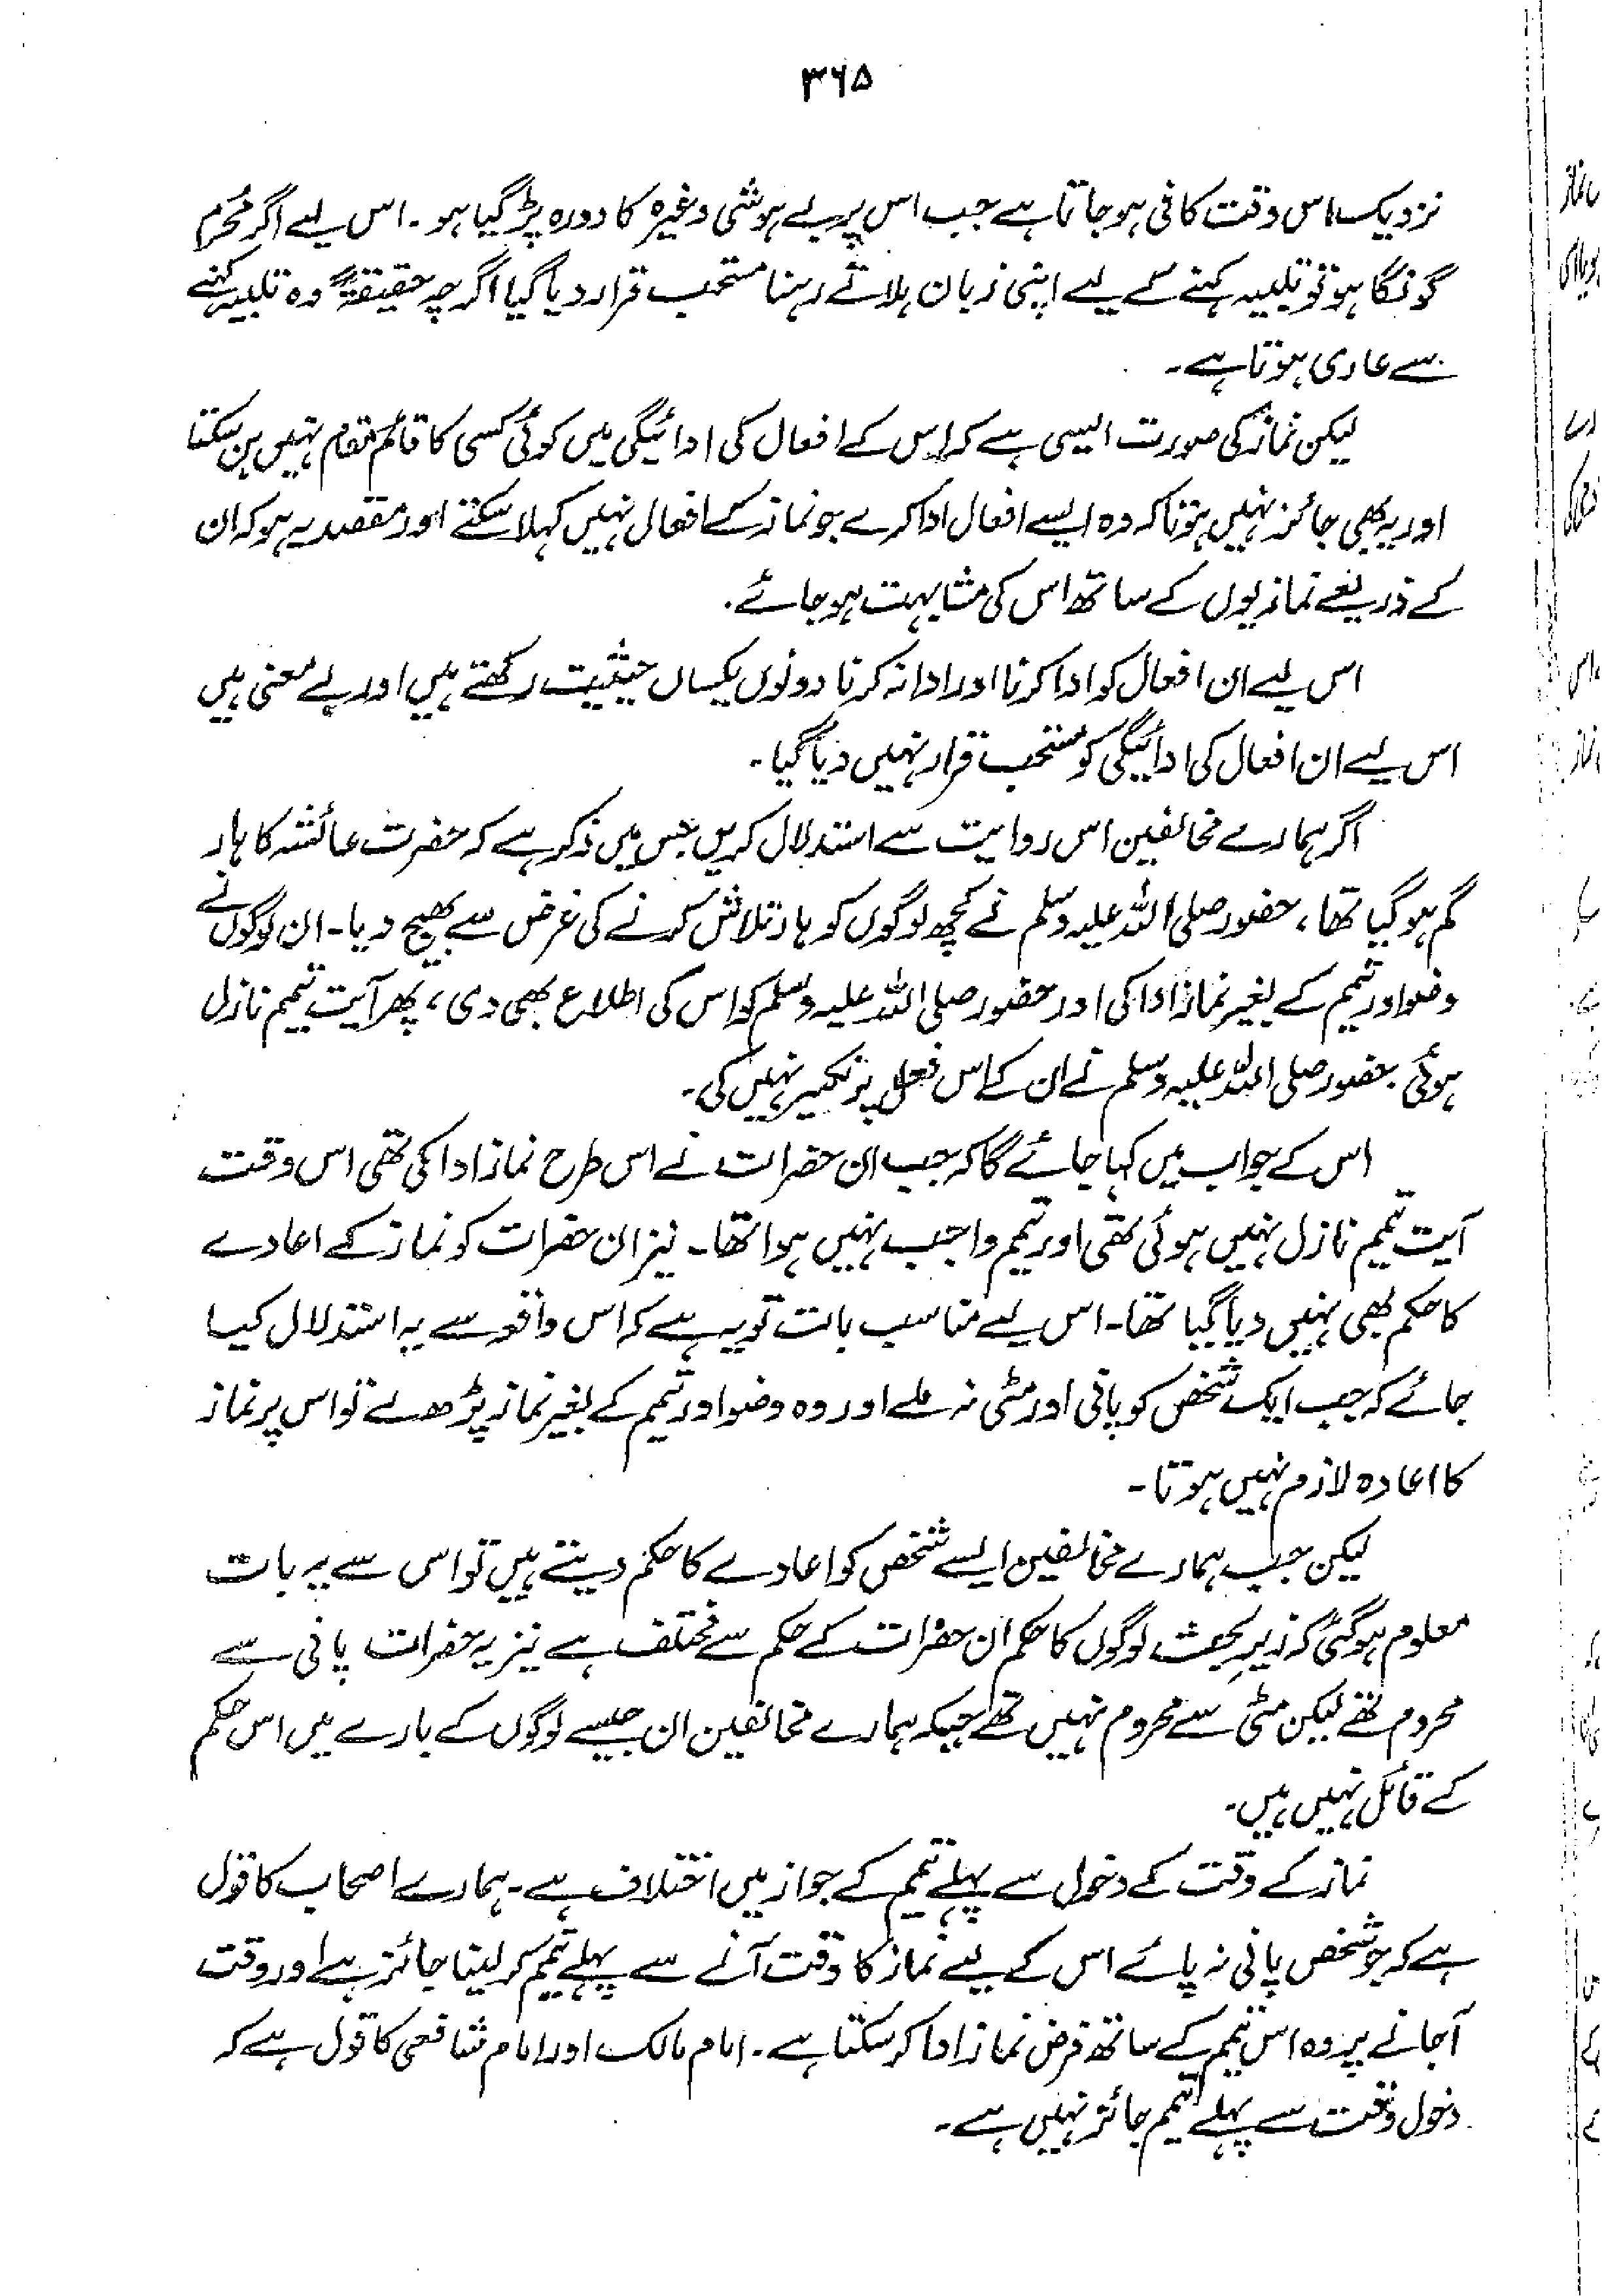 ۳۶۵
نزدیک اس وقت کافی ہو جاتا ہے جب اس پر بے ہوشی وغیرہ کا دورہ پڑ گیا ہو۔ اس لیے اگر محرم
گونگا ہو تو تلبیہ کہنے کے لیے اپنی زبان ہلاتے رہنا مستحب قرار دیا گیا اگرچہ حقیقۃً وہ تلبیہ کہنے
سے عاری ہوتا ہے۔
لیکن نماز کی صورت ایسی ہے کہ اس کے افعال کی ادائیگی میں کوئی کسی کا قائم مقام نہیں بن سکتا
اور یہ بھی جائز نہیں ہوتا کہ وہ ایسے افعال ادا کرے جو نماز کے افعال نہیں کہلا سکتے اور مقصد یہ ہو کہ ان
کے ذریعے نمازیوں کے ساتھ اس کی مشابہت ہو جائے۔
اس لیے ان افعال کو ادا کرنا اور ادا نہ کرنا دونوں یکساں حیثیت رکھتے ہیں اور بے معنی ہیں
اس لیے ان افعال کی ادائیگی کو مستحب قرار نہیں دیا گیا۔
اگر ہمارے مخالفین اس روایت سے استدلال کریں جس میں ذکر ہے کہ حضرت عائشہ کا ہار
گم ہو گیا تھا، حضور صلی اللہ علیہ وسلم نے کچھ لوگوں کو ہار تلاش کرنے کی غرض سے بھیج دیا۔ ان لوگوں نے
وضو اور تیمم کے بغیر نماز ادا کی اور حضور صلی اللہ علیہ وسلم کو اس کی اطلاع بھی دی، پھر آیت تیمم نازل
ہوئی۔ حضور صلی اللہ علیہ وسلم نے ان کے اس فعل پر نکیر نہیں کی۔
اس کے جواب میں کہا جائے گا کہ جب ان حضرات نے اس طرح نماز ادا کی تھی اس وقت
آیت تیمم نازل نہیں ہوئی تھی اور تیمم واجب نہیں ہوا تھا۔ نیز ان حضرات کو نماز کے اعادے
کا حکم بھی نہیں دیا گیا تھا۔ اس لیے مناسب بات تو یہ ہے کہ اس واقعہ سے یہ استدلال کیا
جائے کہ جب ایک شخص کو پانی اور مٹی نہ ملے اور وہ وضو اور تیمم کے بغیر نماز پڑھ لے تو اس پر نماز
کا اعادہ لازم نہیں ہوتا۔
لیکن جب ہمارے مخالفین ایسے شخص کو اعادے کا حکم دیتے ہیں تو اس سے یہ بات
معلوم ہو گئی کہ زیرِ بحث لوگوں کا حکم ان حضرات کے حکم سے مختلف ہے نیز یہ حضرات پانی سے
محروم تھے لیکن مٹی سے محروم نہیں تھے جبکہ ہمارے مخالفین ان جیسے لوگوں کے بارے میں اس حکم
کے قائل نہیں ہیں۔
نماز کے وقت کے دخول سے پہلے تیمم کے جواز میں اختلاف ہے۔ ہمارے اصحاب کا قول
ہے کہ جو شخص پانی نہ پائے اس کے لیے نماز کا وقت آنے سے پہلے تیمم کر لینا جائز ہے اور وقت
آجانے پر وہ اس تیمم کے ساتھ فرض نماز ادا کر سکتا ہے۔ امام مالک اور امام شافعی کا قول ہے کہ
دخول وقت سے پہلے تیمم جائز نہیں ہے۔